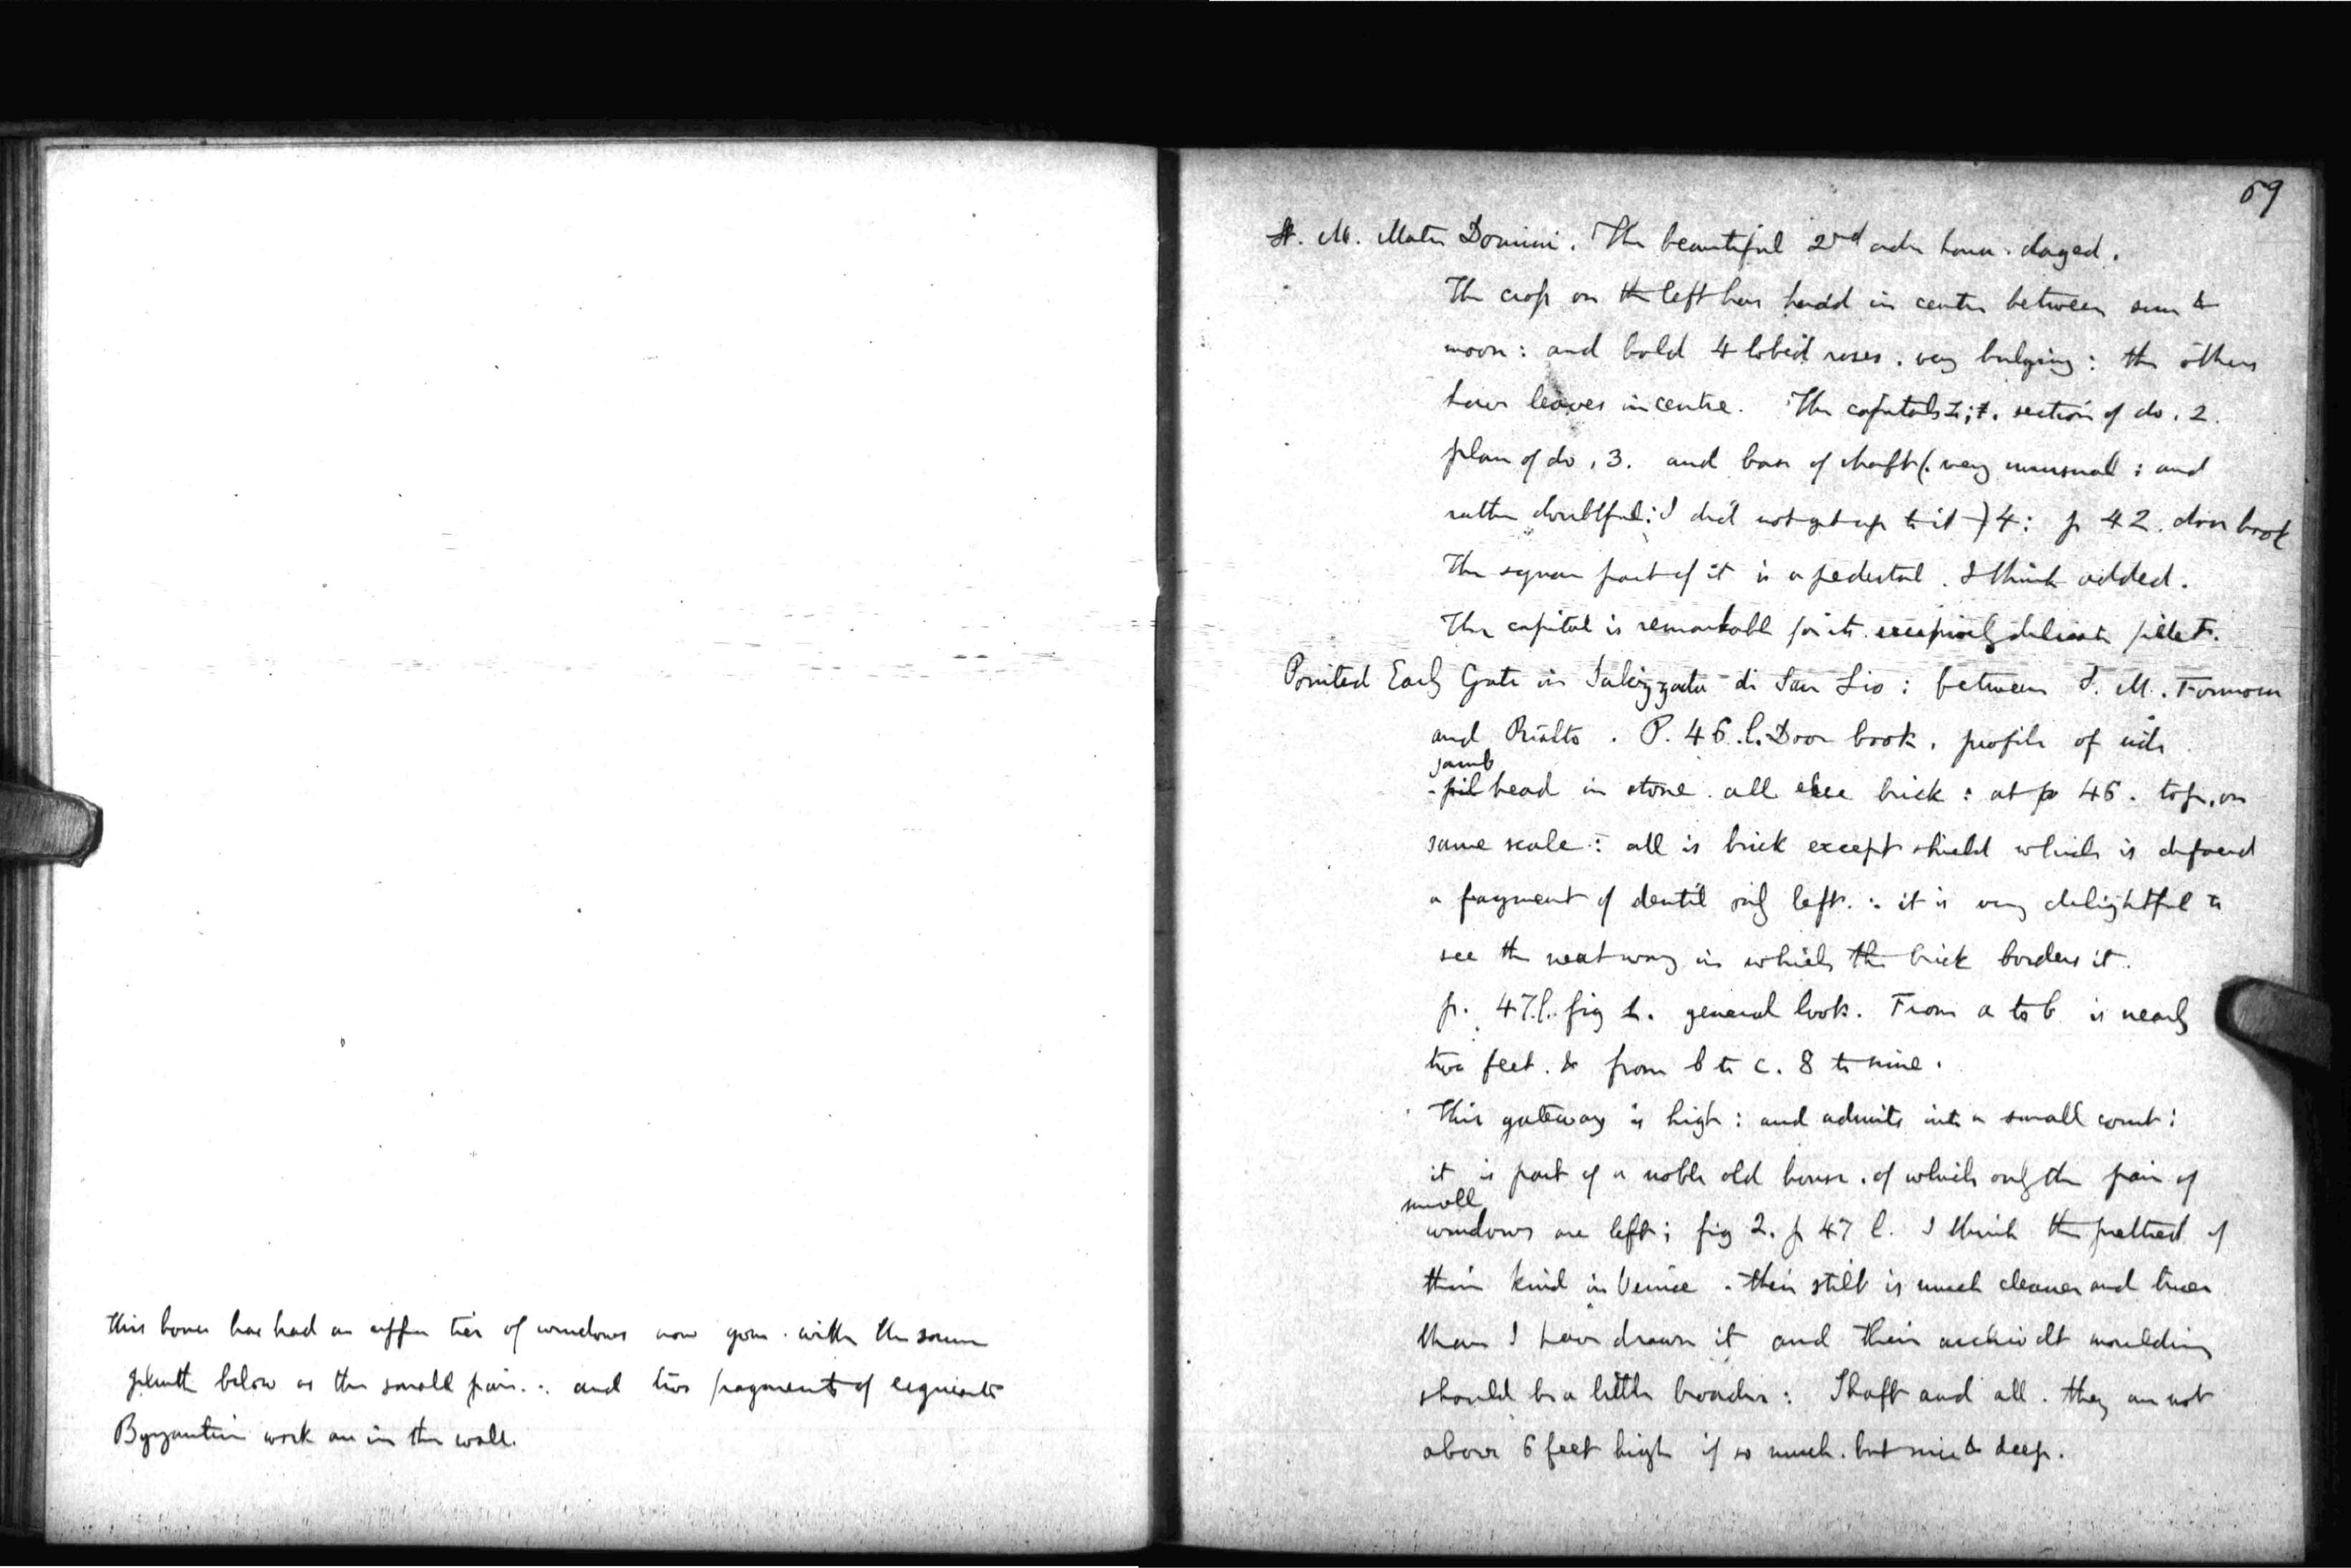 This house has had an upper tier of windows now gone. with the same
plinth below as the small pair. : and two fragments of exquisite
Byzantine work are in the wall.
69
St. M. Mater Domini. The beautiful 2nd order house. daged.
The cross on the left has hand in centre between sun &
moon : and bold 4 lobed roses. very bulging : the others
have leaves in centre. The capitals section of do. 2.
plan of do, 3. and base of shaft (. very unusual : and
rather doubtful : I did not get up to it ) 4 : p 42. door book
The square part of it is a pedestal. I think added.
The capital is remarkable for its exceedingly delicate fillet.
Pointed Early Gate in Salizzada di San Lio : between S. M. Formosa
and Rialto. P. 46. l. Door book. profile of side
jamb
- pil head in stone. all else brick : at p 46. top, on
same scale : all is brick except shield which is defaced
a fragment of dentil only left. : it is very delightful to
see the neat way in which the brick borders it.
p. 47. l. fig 1. general look. From a to b is nearly
two feet. & from b to c. 8 to nine.
This gateway is high : and admits into a small court :
it is part of a noble old house. of which only the pair of
small
windows are left ; fig 2. p 47 l. I think the prettiest of
their kind in Venice. their stilt is much cleaner and truer
than I have drawn it and their archivolt moulding
should be a little broader : Shaft and all. they are not
above 6 feet high if so much. but nice & deep.